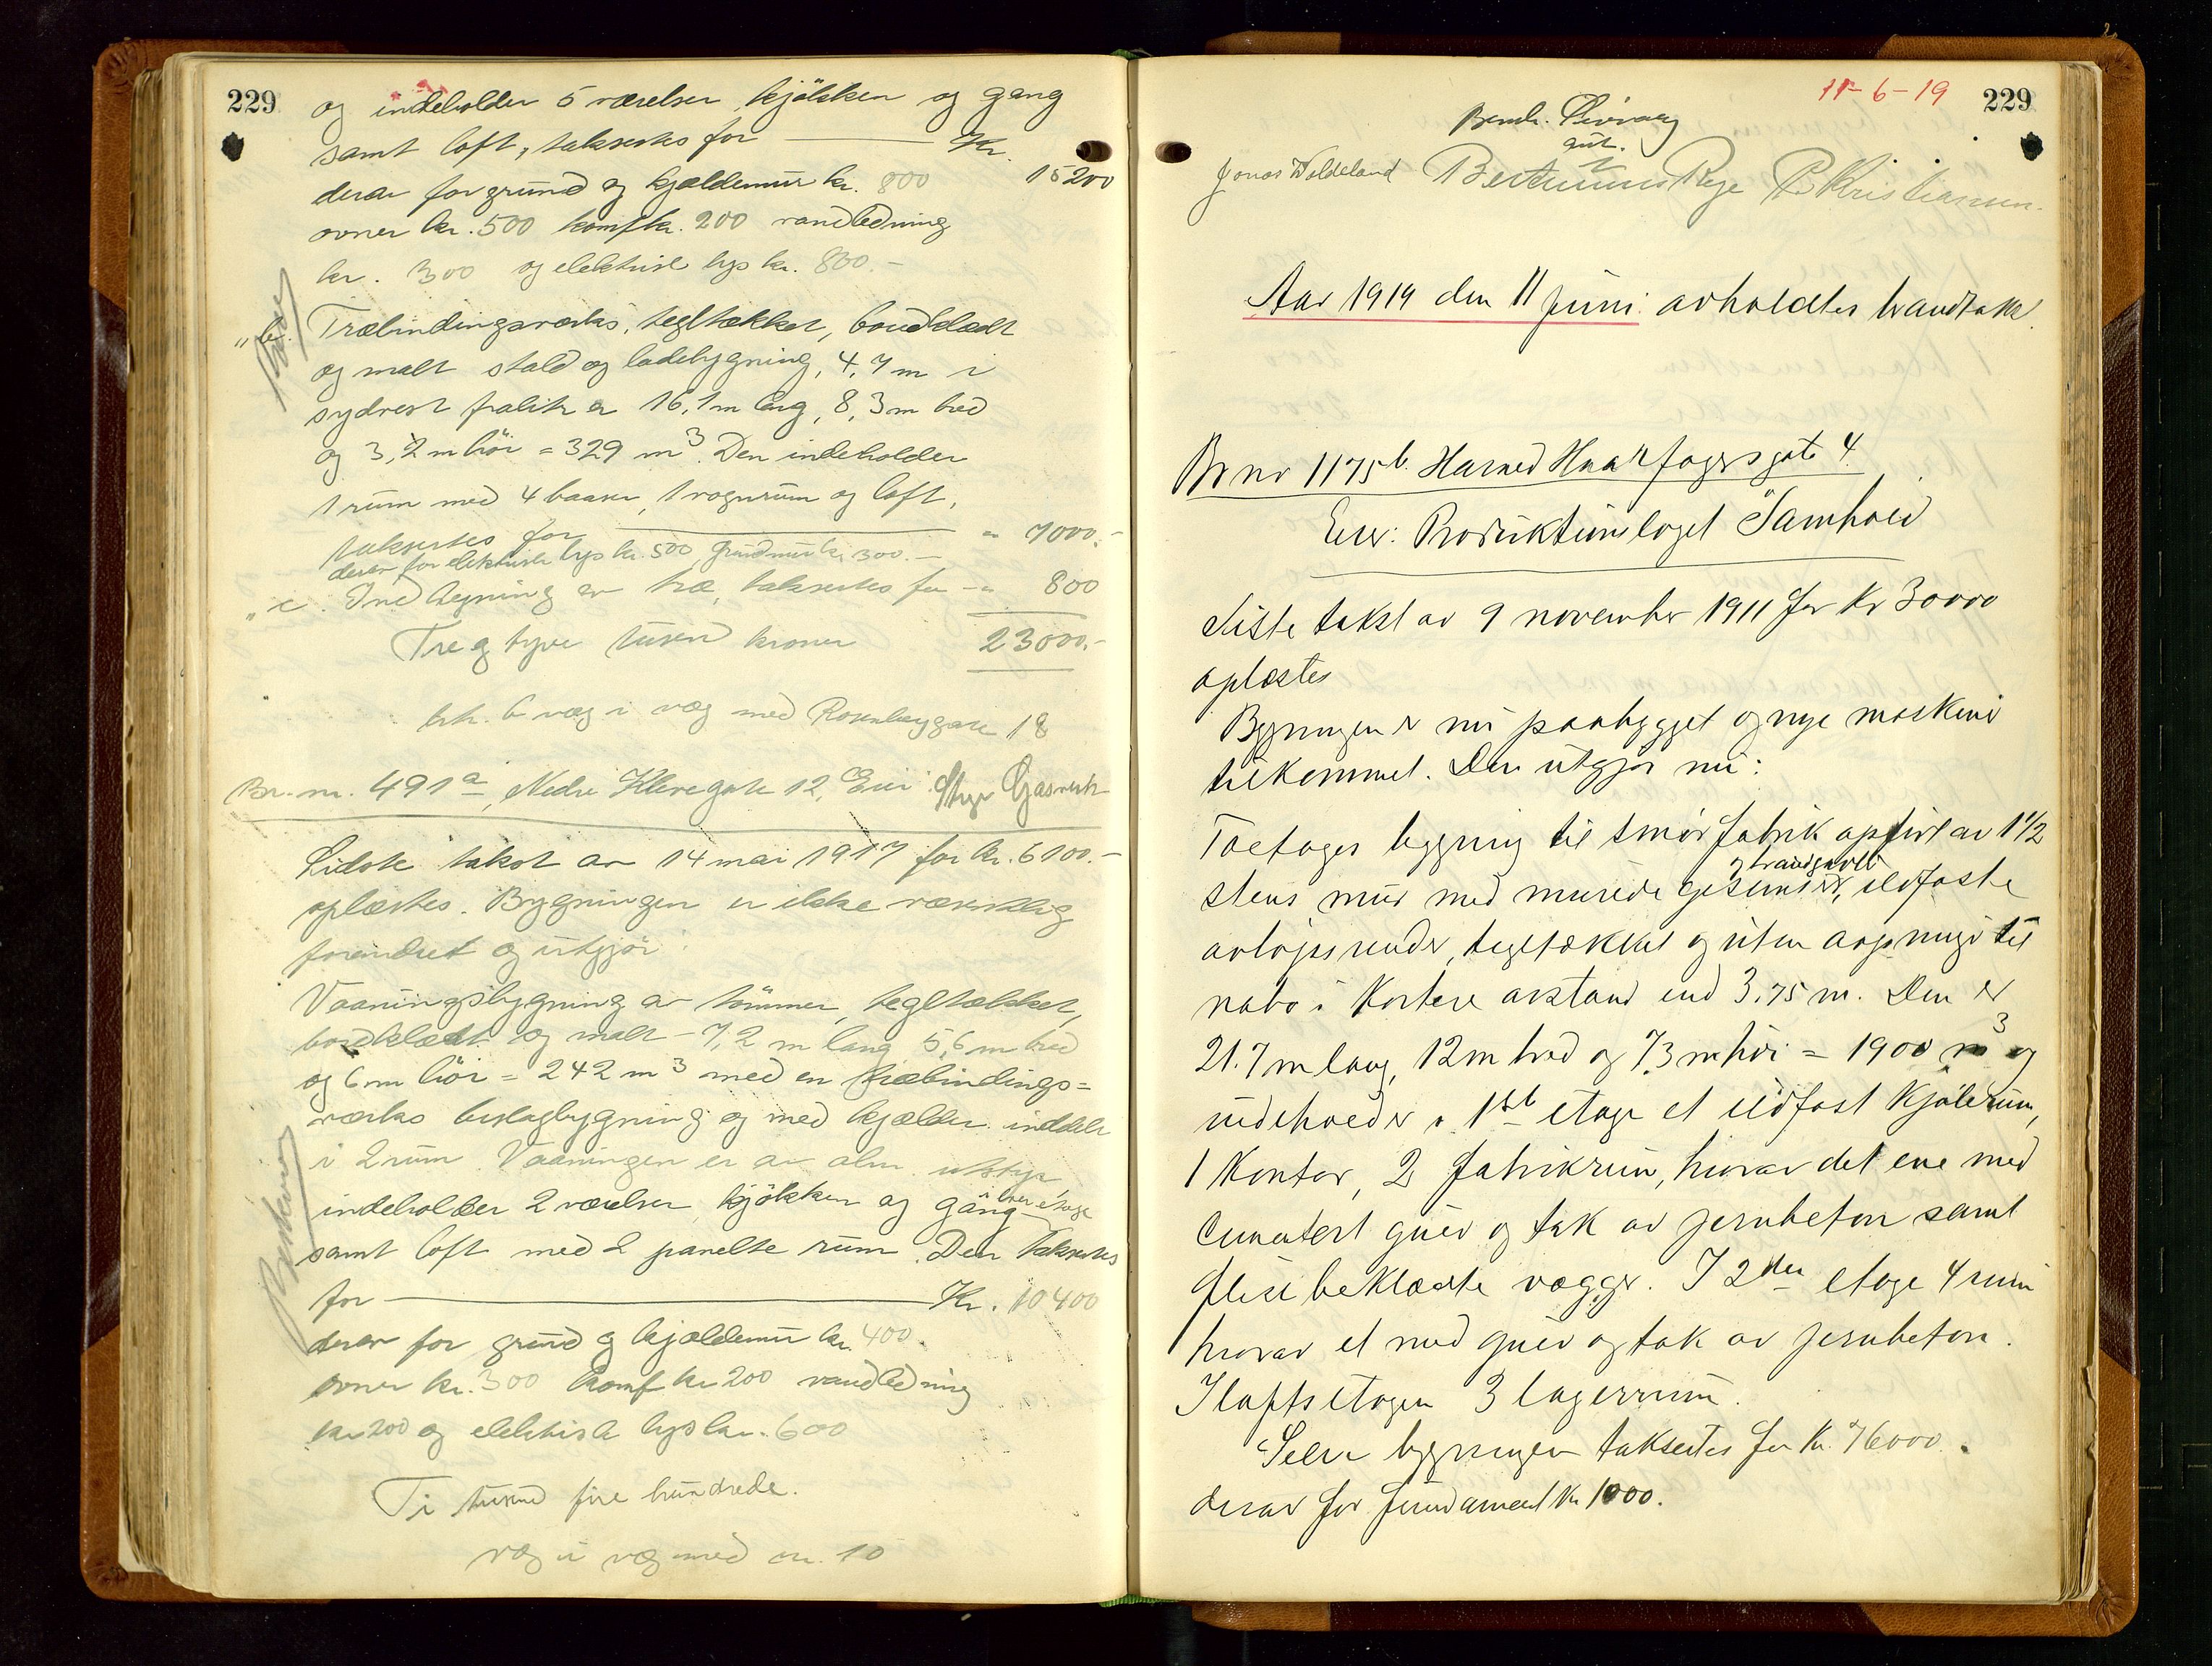 229
og indeholder 5 værelser kjøkken og gang
samt loft, taksertes for — Kr. 15200
derav for grund og kjældemur kr. 800
ovner kr. 500 komf kr. 200 vandledning
kr. 300 og elektrisk lys kr. 800.-
"b. Træbindingsverks, tegltækket, bordklædt
og malt stald og ladebygning, 4,7 m i
sydvest fra litr a 16,1 m lang, 8,3 m bred
og 3,2 m høi = 329 m³. Den indeholder
1 rum med 4 baaser, 1 vognrum og loft,
taksertes for — " 7000.-
derav for elektrisk lys kr. 500, grundmur kr. 300.-
"c. Indhegning av træ, taksertes for — " 800
Tre og tyve tusen kroner 23000.-
litr. b væg i væg med Rosenberggaten 18
Br. nr. 491a, Nedre Klevegate 12, Eier: Stvgr Gasverk
Sidste takst av 14 mai 1917 for kr. 6100.-
oplæstes. Bygningen er ikke væsentlig
forandret og utgjør:
Vaaningsbygning av tømmer, tegltækket,
bordklædt og malt - 7,2 m lang 5,6 m bred
og 6 m høi = 242 m³ med en træbindings=
verks beslagbygning og med kjælder inddelt
i 2 rum. Vaaningen er av alm. utstyr
indeholder 2 værelser kjøkken og gang hver etage
samt loft med 2 panelte rum. Den taksertes
for — Kr. 10400
derav for grund og kjældemur kr. 400.
ovner kr. 300 komf kr 200 vandledning
kr 200 og elektrisk lys kr. 600
Ti tusend fire hundrede.
væg i væg med nr. 10
11-6-19 229
Jonas Voldeland Bertinius Rege P Kristiansen.
Aar 1919 den 11 juni avholdtes brandtakst.
Br nr 1175b. Harald Haarfagersgate 4.
Eier: Produktionslaget Samhold
Siste takst av 9 november 1911 for Kr 30000
oplæstes
Bygningen er nu paabygget og nye maskiner
tilkommet. Den utgjør nu:
Toetages bygning til smørfabrik opført av 1½
stens mur med murede gesimser, og brandgavle ildfaste
avløpsrender, tegltækket og uten aapninger til
nabo i kortere avstand end 3.75 m. Den er
21.7 m lang, 12 m bred og 7.3 m høi = 1900 m³ og
indeholder i 1ste etage et ildfast kjølerum,
1 kontor, 2 fabrikrum, hvorav det ene med
cementert gulv og tak av jernbeton samt
flisebeklædte vægger. I 2den etage 4 rum
hvorav et med gulv og tak av jernbeton.
I loftsetagen 3 lagerrum.
Selve bygningen taksertes for Kr. 76000.
derav for fundament Kr 1000.